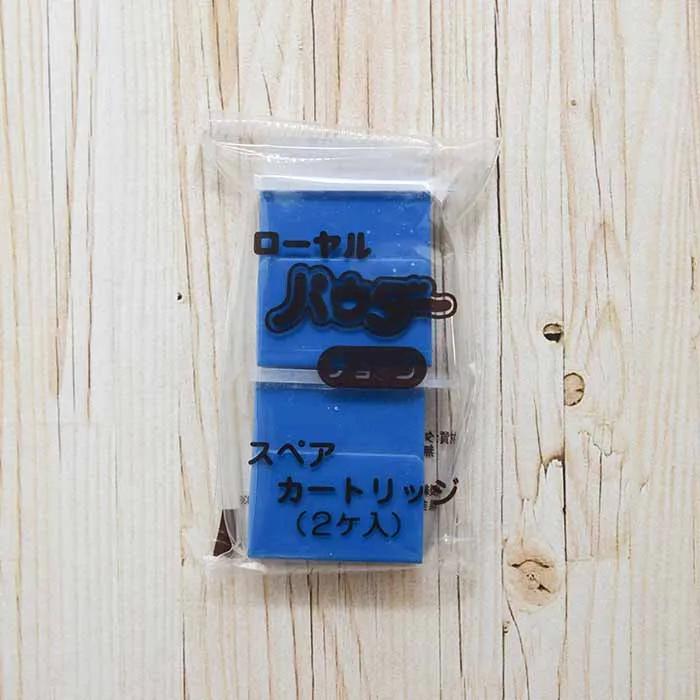 ローヤル
パウダー
チョーク
スペア
カートリッジ
(2ケ入)